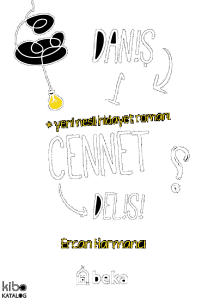 DANIŞ
+ yeni nesil hidayet romanı
CENNET
DELİSİ
Ercan Harmancı
beka
kibo
KATALOG